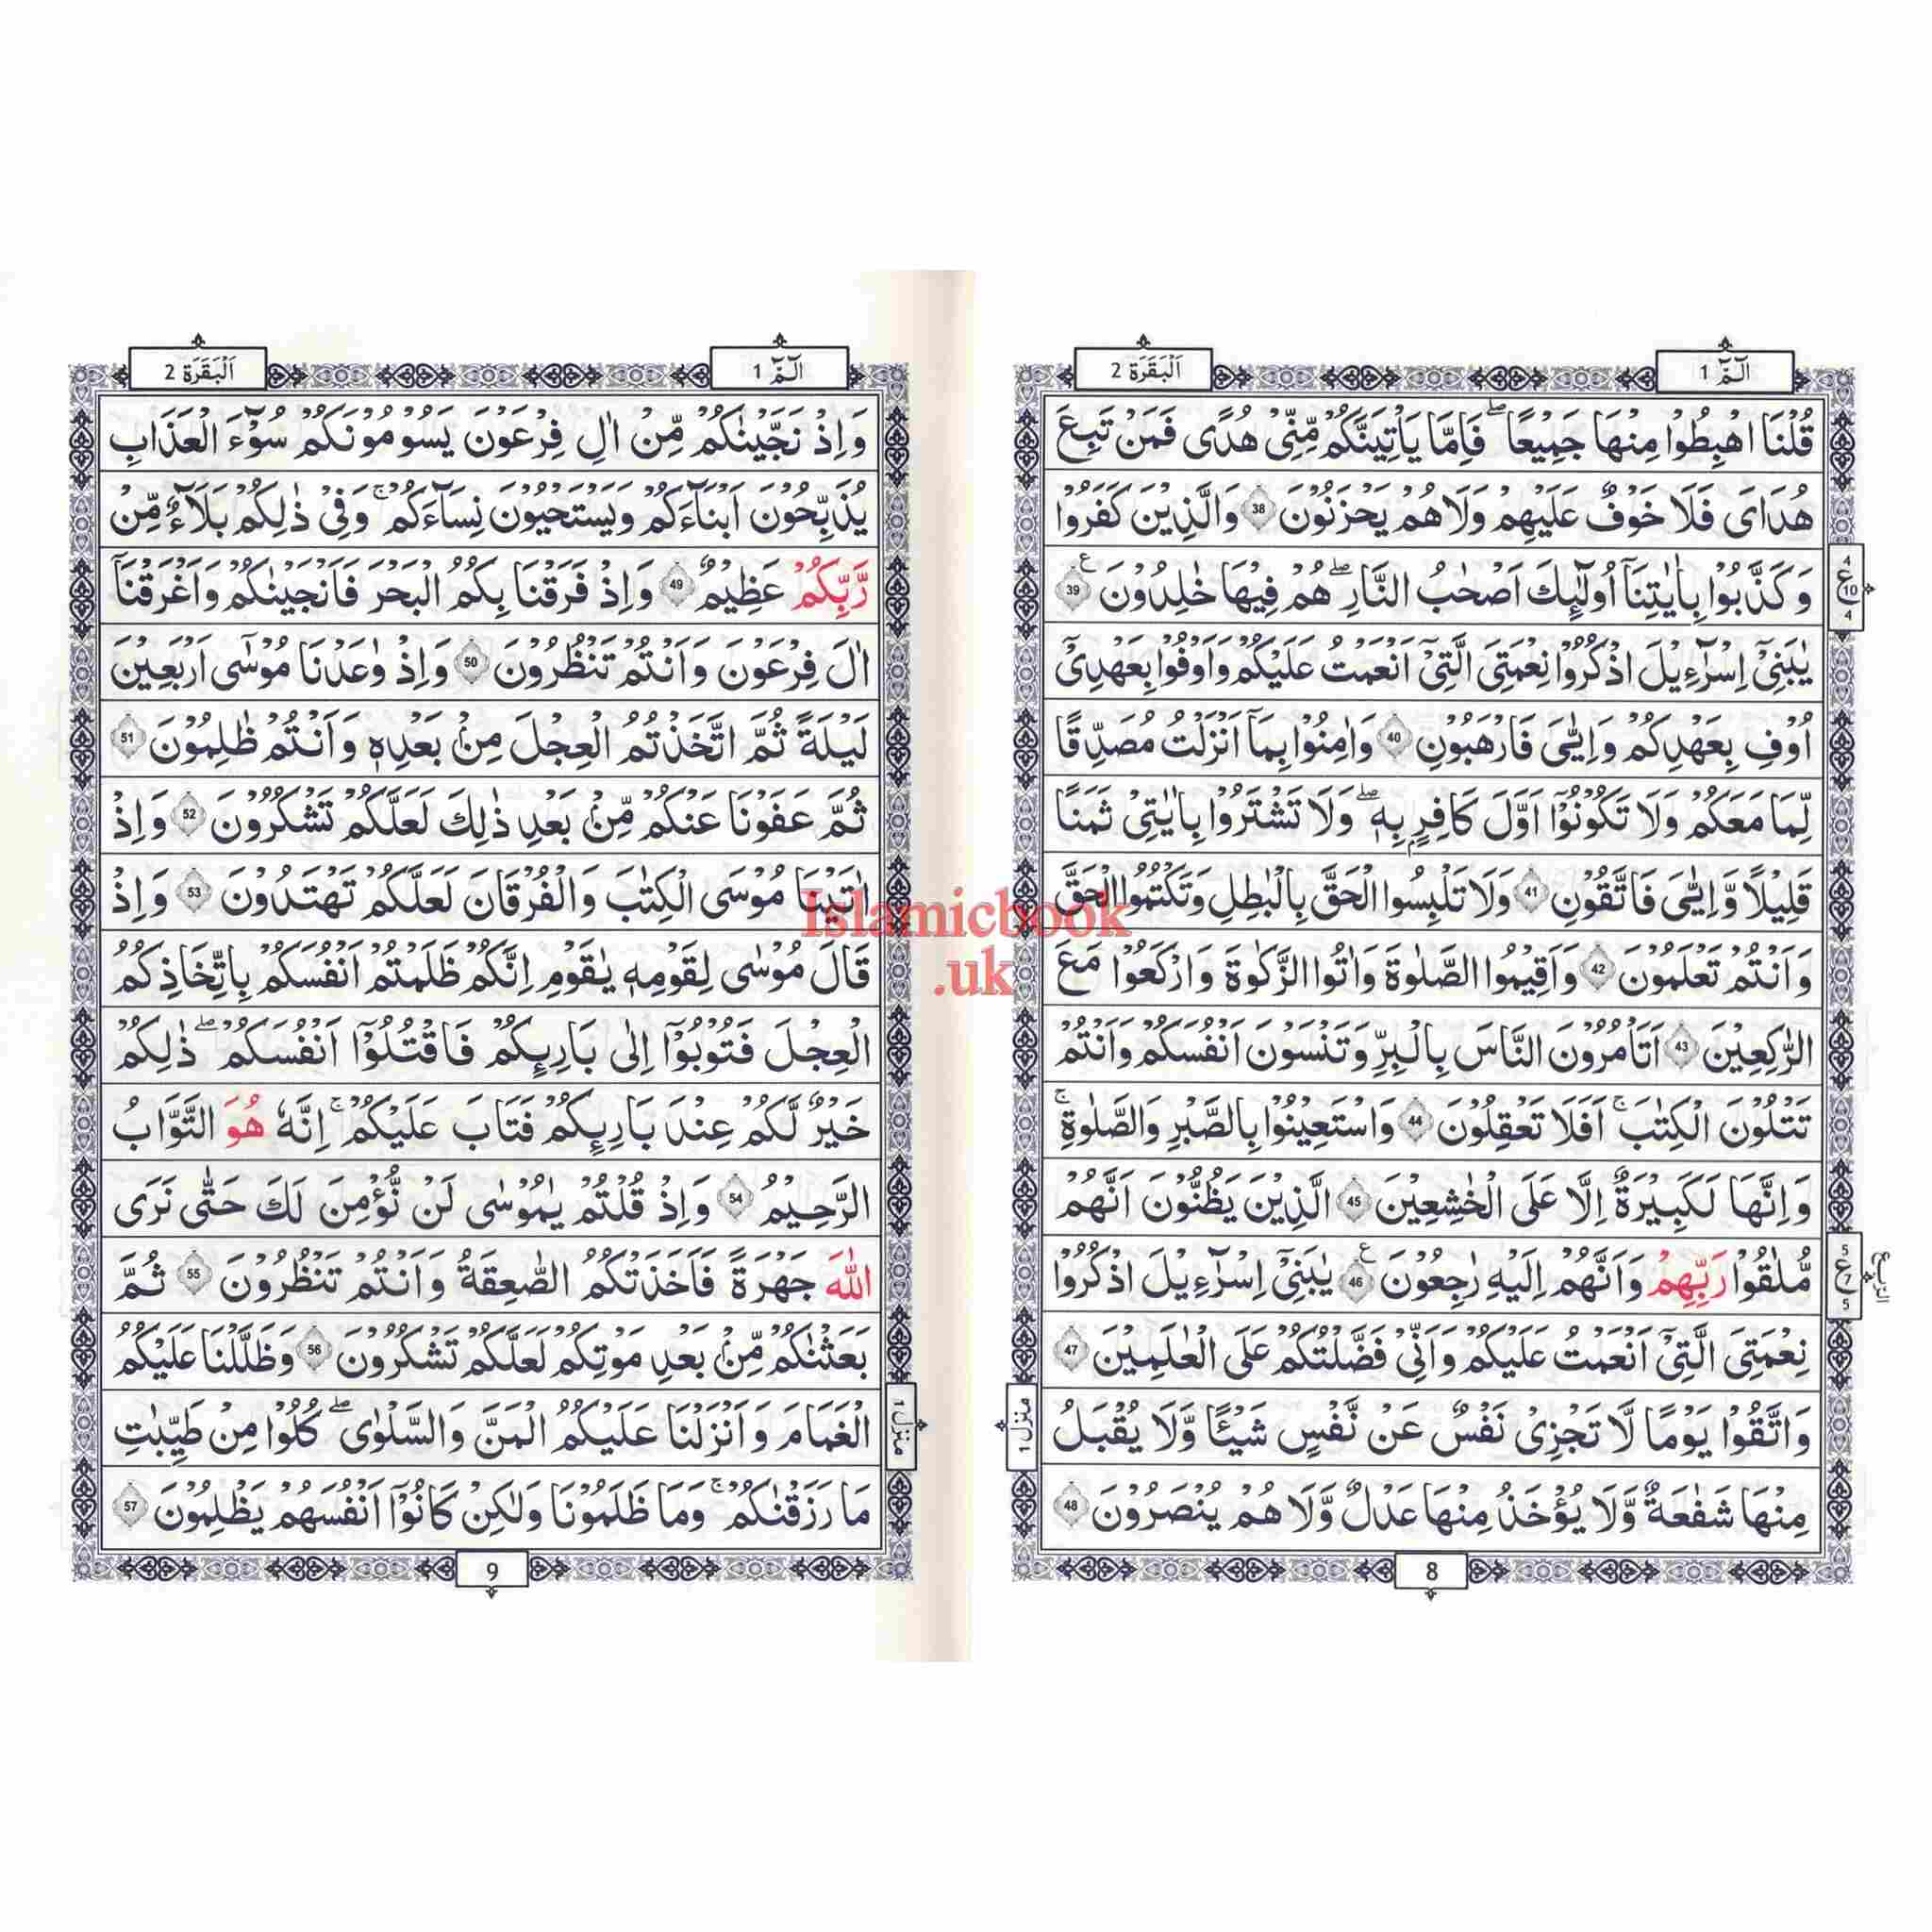 الٓمّٓ 1
اَلْبَقَرَة 2
قُلْنَا اهْبِطُوْا مِنْهَا جَمِيْعًا ۖ فَاِمَّا يَاْتِيَنَّكُمْ مِّنِّىْ هُدًى فَمَنْ تَبِعَ
هُدَاىَ فَلَا خَوْفٌ عَلَيْهِمْ وَلَا هُمْ يَحْزَنُوْنَ 38 وَالَّذِيْنَ كَفَرُوْا
وَكَذَّبُوْا بِاٰيٰتِنَآ اُولٰٓئِكَ اَصْحٰبُ النَّارِ ۖ هُمْ فِيْهَا خٰلِدُوْنَ 39 ع
يٰبَنِىْٓ اِسْرَآءِيْلَ اذْكُرُوْا نِعْمَتِىَ الَّتِىْٓ اَنْعَمْتُ عَلَيْكُمْ وَاَوْفُوْا بِعَهْدِىْٓ
اُوْفِ بِعَهْدِكُمْ وَاِيَّاىَ فَارْهَبُوْنِ 40 وَاٰمِنُوْا بِمَآ اَنْزَلْتُ مُصَدِّقًا
لِّمَا مَعَكُمْ وَلَا تَكُوْنُوْٓا اَوَّلَ كَافِرٍۭ بِهٖ ۖ وَلَا تَشْتَرُوْا بِاٰيٰتِىْ ثَمَنًا
قَلِيْلًا وَّاِيَّاىَ فَاتَّقُوْنِ 41 وَلَا تَلْبِسُوا الْحَقَّ بِالْبٰطِلِ وَتَكْتُمُوا الْحَقَّ
وَاَنْتُمْ تَعْلَمُوْنَ 42 وَاَقِيْمُوا الصَّلٰوةَ وَاٰتُوا الزَّكٰوةَ وَارْكَعُوْا مَعَ
الرّٰكِعِيْنَ 43 اَتَاْمُرُوْنَ النَّاسَ بِالْبِرِّ وَتَنْسَوْنَ اَنْفُسَكُمْ وَاَنْتُمْ
تَتْلُوْنَ الْكِتٰبَ ۚ اَفَلَا تَعْقِلُوْنَ 44 وَاسْتَعِيْنُوْا بِالصَّبْرِ وَالصَّلٰوةِ ۚ
وَاِنَّهَا لَكَبِيْرَةٌ اِلَّا عَلَى الْخٰشِعِيْنَ 45 الَّذِيْنَ يَظُنُّوْنَ اَنَّهُمْ
مُّلٰقُوْا رَبِّهِمْ وَاَنَّهُمْ اِلَيْهِ رٰجِعُوْنَ 46 ع يٰبَنِىْٓ اِسْرَآءِيْلَ اذْكُرُوْا
نِعْمَتِىَ الَّتِىْٓ اَنْعَمْتُ عَلَيْكُمْ وَاَنِّىْ فَضَّلْتُكُمْ عَلَى الْعٰلَمِيْنَ 47
وَاتَّقُوْا يَوْمًا لَّا تَجْزِىْ نَفْسٌ عَنْ نَّفْسٍ شَيْئًا وَّلَا يُقْبَلُ
مِنْهَا شَفٰعَةٌ وَّلَا يُؤْخَذُ مِنْهَا عَدْلٌ وَّلَا هُمْ يُنْصَرُوْنَ 48
4 ع 10 4
5 ع 7 5
الربع
منزل 1
8
الٓمّٓ 1
اَلْبَقَرَة 2
وَاِذْ نَجَّيْنٰكُمْ مِّنْ اٰلِ فِرْعَوْنَ يَسُوْمُوْنَكُمْ سُوْٓءَ الْعَذَابِ
يُذَبِّحُوْنَ اَبْنَآءَكُمْ وَيَسْتَحْيُوْنَ نِسَآءَكُمْ ۚ وَفِىْ ذٰلِكُمْ بَلَآءٌ مِّنْ
رَّبِّكُمْ عَظِيْمٌ 49 وَاِذْ فَرَقْنَا بِكُمُ الْبَحْرَ فَاَنْجَيْنٰكُمْ وَاَغْرَقْنَآ
اٰلَ فِرْعَوْنَ وَاَنْتُمْ تَنْظُرُوْنَ 50 وَاِذْ وٰعَدْنَا مُوْسٰٓى اَرْبَعِيْنَ
لَيْلَةً ثُمَّ اتَّخَذْتُمُ الْعِجْلَ مِنْۢ بَعْدِهٖ وَاَنْتُمْ ظٰلِمُوْنَ 51
ثُمَّ عَفَوْنَا عَنْكُمْ مِّنْۢ بَعْدِ ذٰلِكَ لَعَلَّكُمْ تَشْكُرُوْنَ 52 وَاِذْ
اٰتَيْنَا مُوْسَى الْكِتٰبَ وَالْفُرْقَانَ لَعَلَّكُمْ تَهْتَدُوْنَ 53 وَاِذْ
قَالَ مُوْسٰى لِقَوْمِهٖ يٰقَوْمِ اِنَّكُمْ ظَلَمْتُمْ اَنْفُسَكُمْ بِاتِّخَاذِكُمُ
الْعِجْلَ فَتُوْبُوْٓا اِلٰى بَارِئِكُمْ فَاقْتُلُوْٓا اَنْفُسَكُمْ ۖ ذٰلِكُمْ
خَيْرٌ لَّكُمْ عِنْدَ بَارِئِكُمْ فَتَابَ عَلَيْكُمْ ۚ اِنَّهٗ هُوَ التَّوَّابُ
الرَّحِيْمُ 54 وَاِذْ قُلْتُمْ يٰمُوْسٰى لَنْ نُّؤْمِنَ لَكَ حَتّٰى نَرَى
اللّٰهَ جَهْرَةً فَاَخَذَتْكُمُ الصّٰعِقَةُ وَاَنْتُمْ تَنْظُرُوْنَ 55 ثُمَّ
بَعَثْنٰكُمْ مِّنْۢ بَعْدِ مَوْتِكُمْ لَعَلَّكُمْ تَشْكُرُوْنَ 56 وَظَلَّلْنَا عَلَيْكُمُ
الْغَمَامَ وَاَنْزَلْنَا عَلَيْكُمُ الْمَنَّ وَالسَّلْوٰى ۖ كُلُوْا مِنْ طَيِّبٰتِ
مَا رَزَقْنٰكُمْ ۚ وَمَا ظَلَمُوْنَا وَلٰكِنْ كَانُوْٓا اَنْفُسَهُمْ يَظْلِمُوْنَ 57
منزل 1
9
Islamicbook
.uk